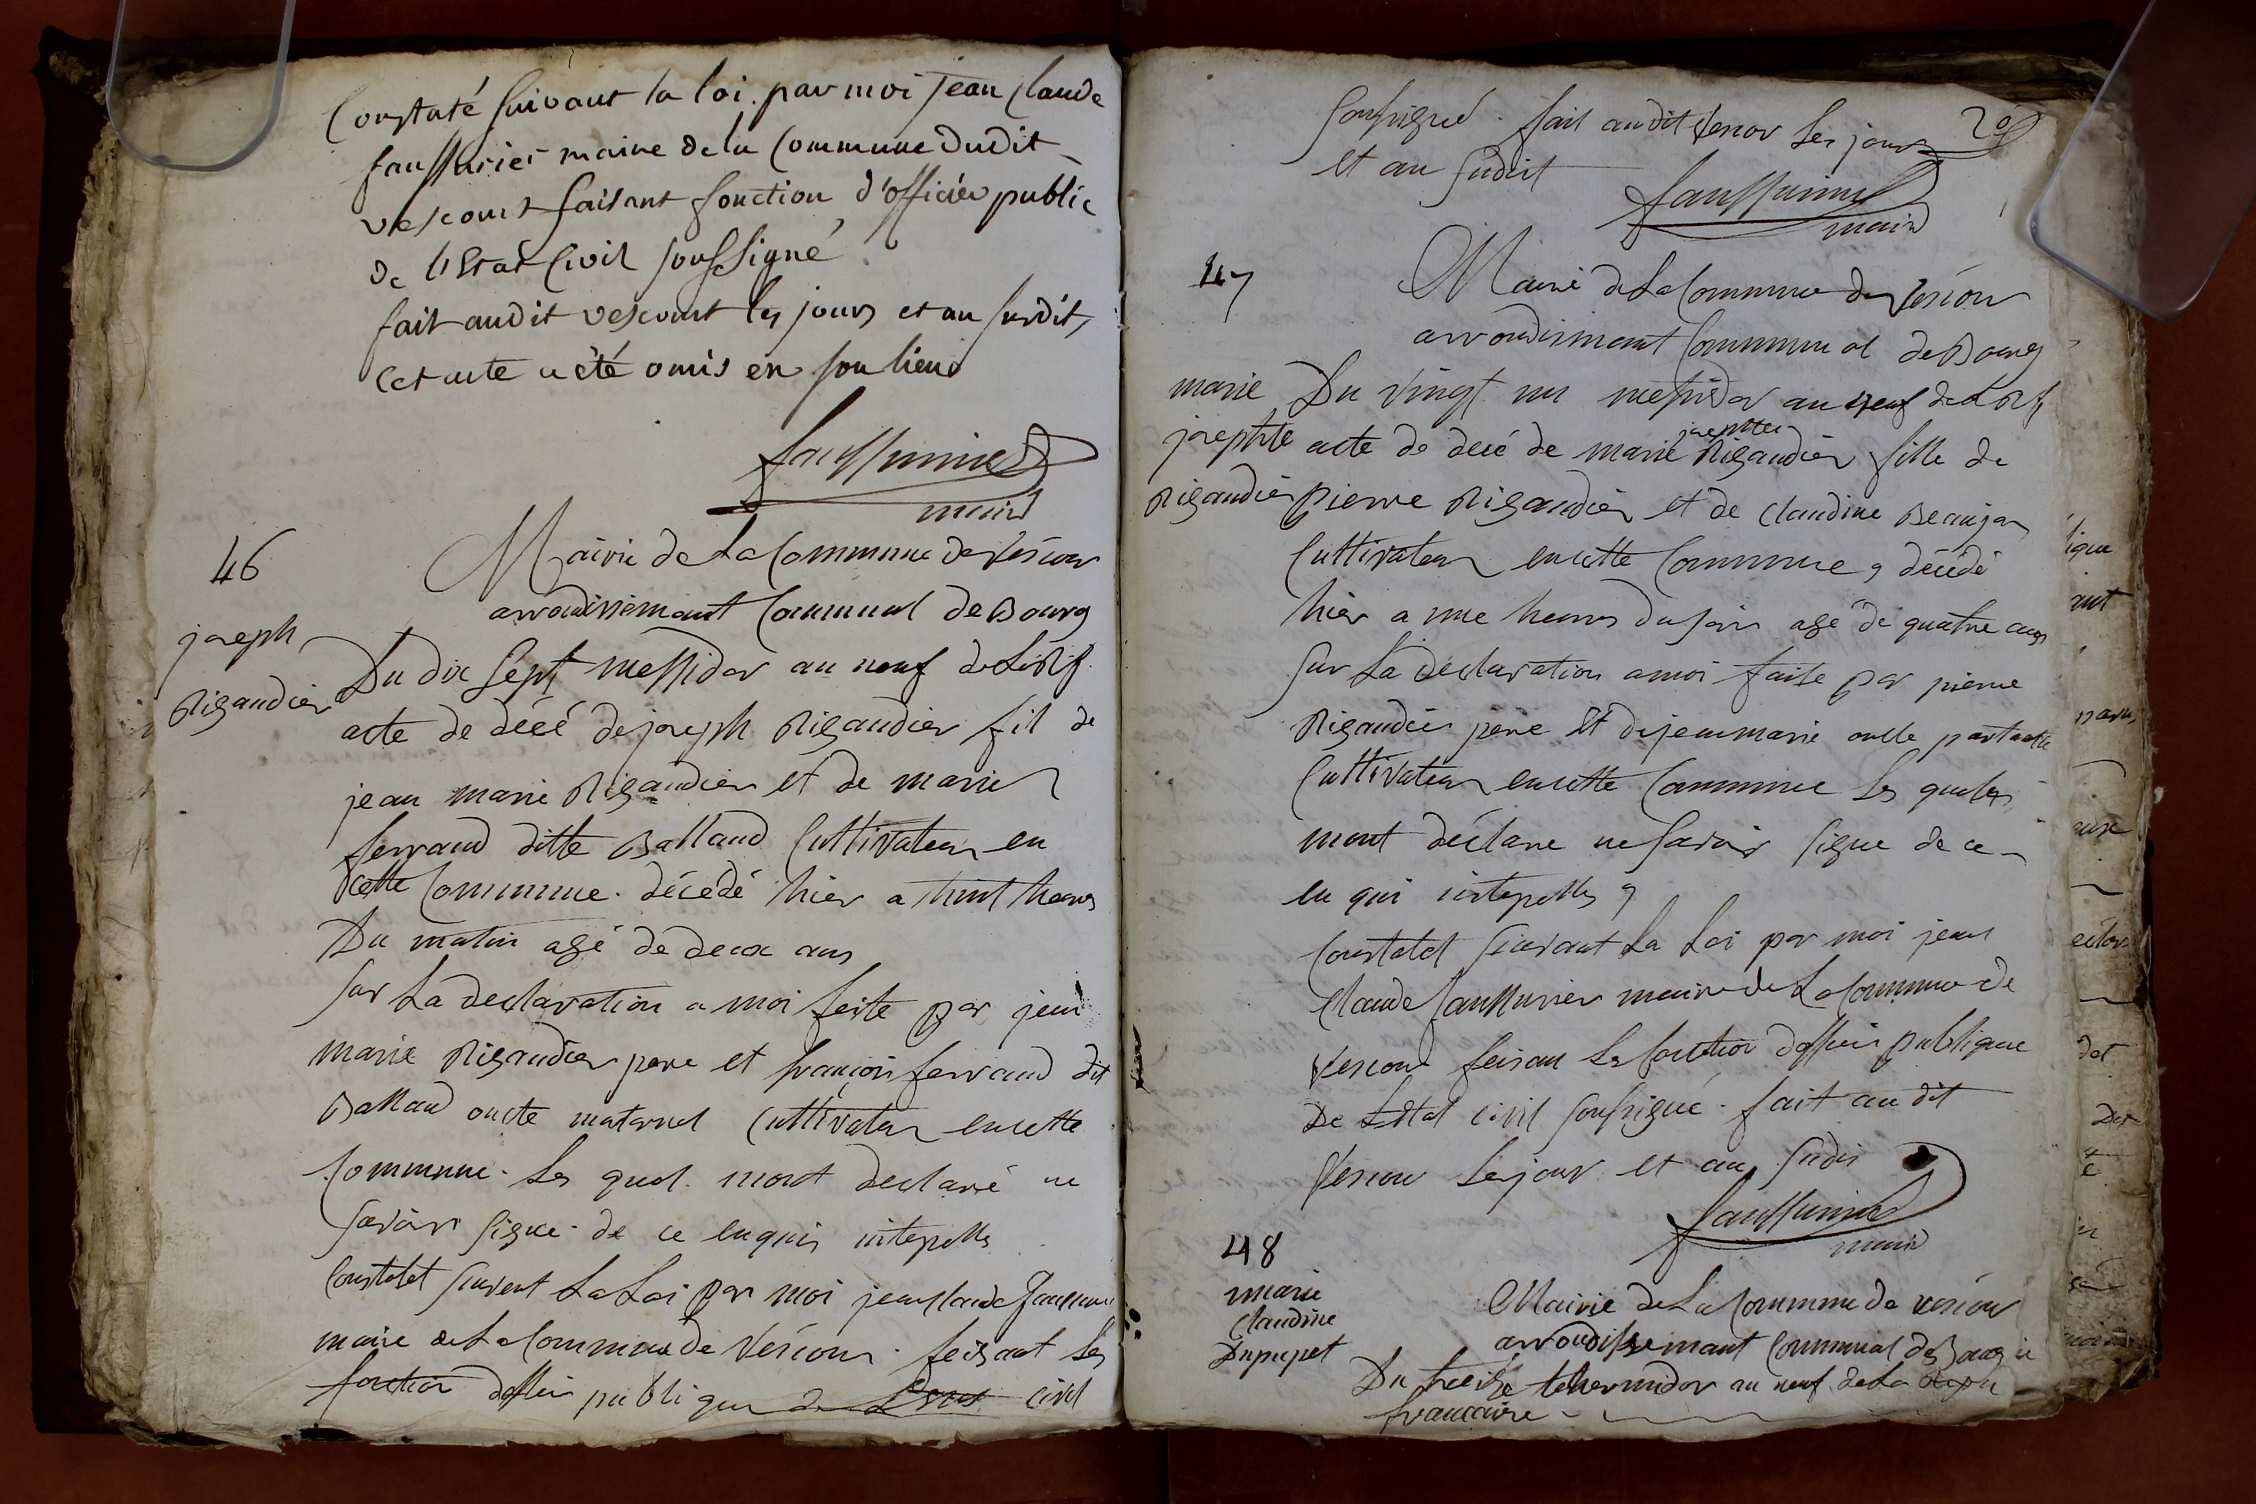 Constaté suivant la loi par moi jean Claude
faussurier maire de la Commune dudit
vescourt faisant fonction d'officier public
de l'Etat Civil soussigné
fait audit vescourt les jours et an susdit,
Cet acte a été omis en son lieu
faussurier
maire
46
Mairie de La Commune de Vescour
arrondissemant Communal de Bourg
joseph
Rigaudier
Du dix sept messidor an neuf de La Rf
acte de décé de joseph Rigaudier fil de
jean marie Rigaudier et de marie
ferraud ditte Ballaud Cultivateur en
cette Commune. décédé hier a huit heures
Du matin agé de deux ans
sur La declaration a moi feite par jean
marie Rigaudier pere et françois ferraud dit
Ballaud oncle maternel Cultivateur en cette
Commune. Les quel mont declaré ne
savoir signé. de ce enquis
Constatet suivent La Loi par moi jean Claude faussurier
maire de La Commune de Vescour. feisant Les
fonction publique de civil
20
soussigné. fait audit Vescour Les jours
et an sudit
faussurier
maire
47
Mairie de La Commune de Vescour
arrondissmant Communal de Bourg
marie
josephte
Rigaudier
Du vingt un messidor an neuf de La Rf
acte de decé de marie josephte Rigaudier fille de
pierre Rigaudier et de Claudine Beaujon
Cultivateur en cette Commune, décédé
hier a une heures du soir agé de quatre ans
sur La declaration a moi faite par pierre
Rigaudier pere et de jean marie
Cultivateur en cette Commune Les quelles
mont déclare ne savoir signe de ce
en qui
Constatet suivant La Loi par moi jean
Claude faussurier maire de La Commune de
Vescour feisan Les fonction publique
De Letat civil soussigné. fait au dit
Vescour Les jour et an sudis
faussurier
maire
48
marie
Claudine
Dupupet
Mairie de La Commune de vescour
arrondissemant Communal de Bourg
Du treize thermidor an neuf de La
francaise